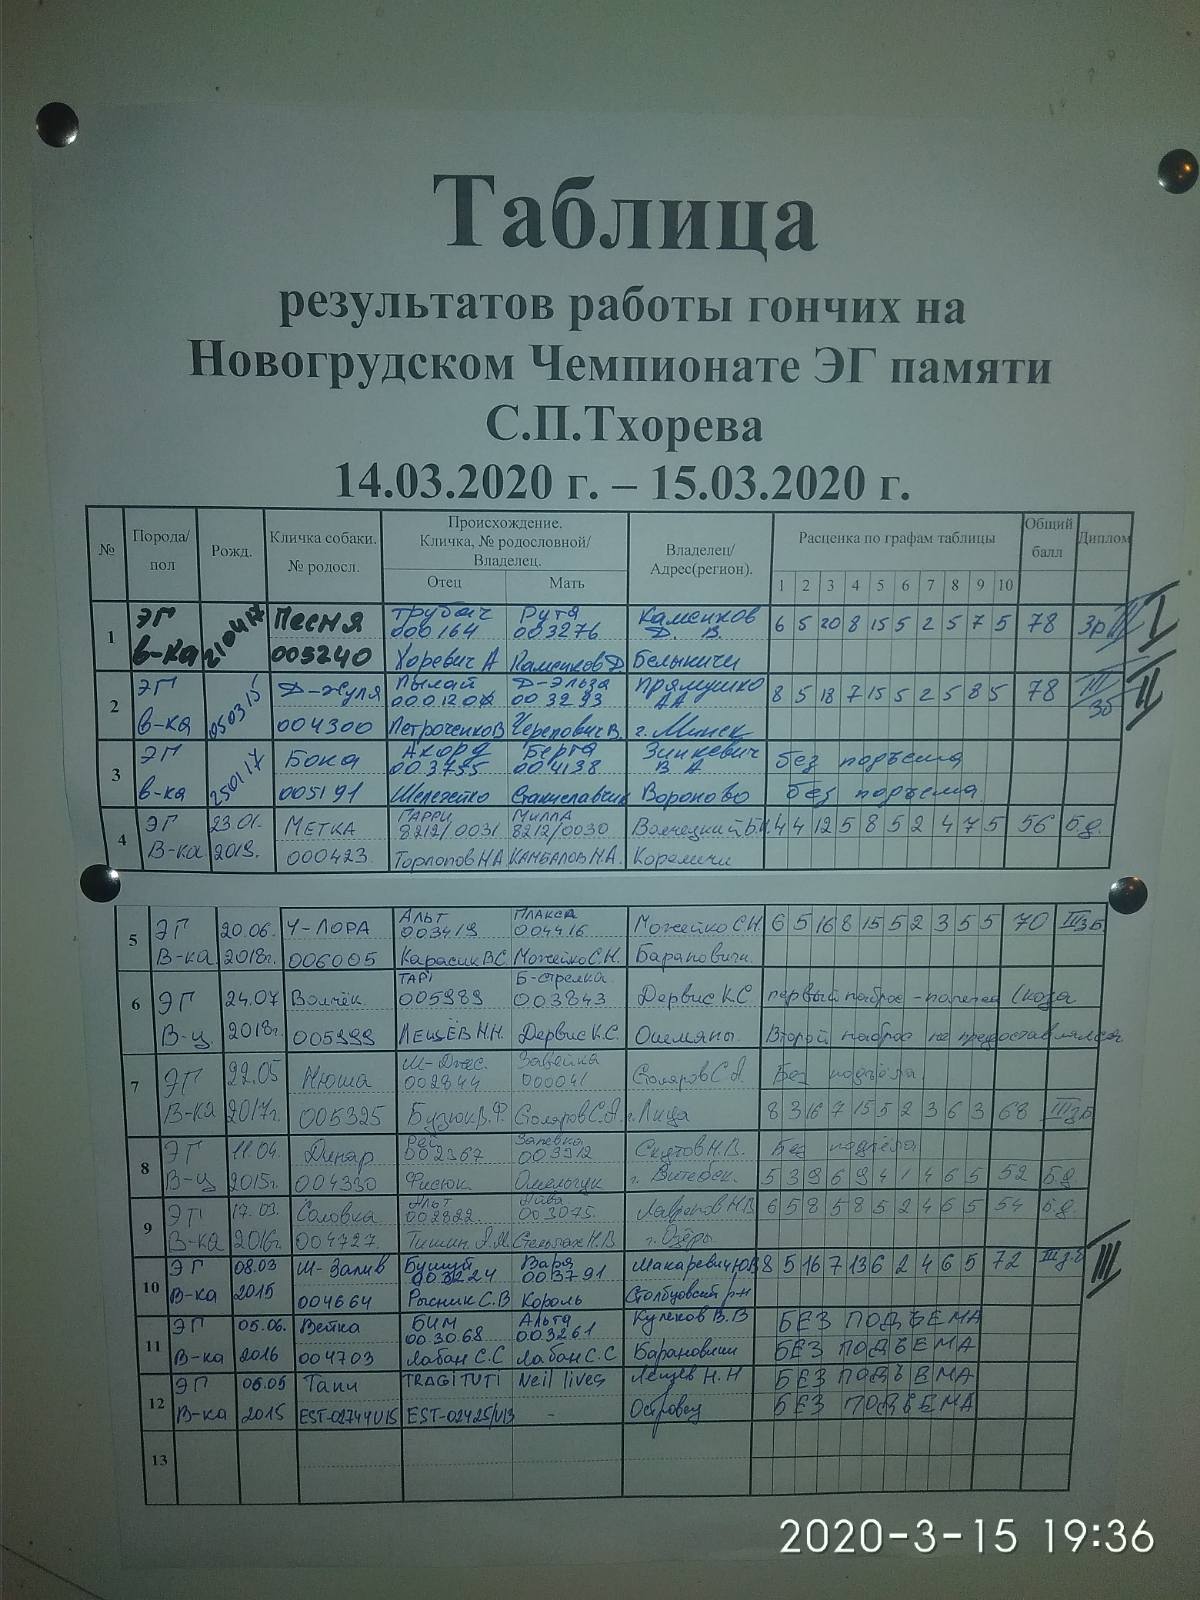 Таблица
результатов работы гончих на
Новогрудском Чемпионате ЭГ памяти
С.П.Тхорева
14.03.2020 г. – 15.03.2020 г.
№ Порода/ пол Рожд. Кличка собаки. № родосл. Происхождение. Кличка, № родословной/ Владелец. Отец Мать Владелец/ Адрес(регион). Расценка по графам таблицы 1 2 3 4 5 6 7 8 9 10 Общий балл Диплом
1 ЭГ Песня Трубач Рута Каменков
210417 000164 003276 Д. В. 6 5 20 8 15 5 2 5 7 5 78 I
в-ка 005240 Хоревич А Каменков Д Белыничи
2 ЭГ 050315 Д-Жуля Пылай Д-Эльза Прямушко
003293 АА 8 5 18 7 15 5 2 5 8 5 78 III зб II
в-ка 004300 Петроченко В Черепович В. г. Минск
3 ЭГ 250117 Бока Акорд Берта Зинкевич без подъема
003755 004138 В А
в-ка 005191 Шележейко Станиславчик Вороново без подъема
4 ЭГ 23.01. МЕТКА ГАРРИ МИЛЛА
8212/0031 8212/0030 4 4 12 5 8 5 2 4 7 5 56 б.д.
В-ка 2019. 000423. Торлопов НА КАМБАЛОВ Н.А. Кореличи
5 ЭГ 20.06. Ч-ЛОРА АЛЬТ ПЛАКСА Можейко С.Н. 6 5 16 8 15 5 2 3 5 5 70 III з Б
003419 004416
В-ка 2018г. 006005 Карасик В.С. Можейко С.Н. Барановичи
6 ЭГ 24.07 Волчёк Б-стрелка Дервис К.С первый наброс - (коза
005989 003843
В-ц 2018г. 005999 ЛЕЩЁВ Н.Н. Дервис К.С. Ошмяны. Второй наброс не предоставлялся
7 ЭГ 22.05 Нюша Ш-Джес. Завейка Столяров С.А. Без подъёма
002844 000041
В-ка 2017г. 005325 Бузюк В.Ф. Столяров С.А. г. Лида 8 3 16 7 15 5 2 3 6 3 68 III з Б
8 ЭГ 11.04. Динар Рей Запевка Без подъёма
002367 003912
В-ц 2015г. 004330 г. Витебск. 5 3 9 6 9 4 1 4 6 5 52 б.д
9 ЭГ 17.03. Альт 6 5 8 5 8 5 2 4 6 5 54 б.д.
002822 003075
В-ка 2016г 004727. г. Озёры
10 ЭГ 08.03 Ш-Залив Бушуй Варя Макаревич Ю.В. 8 5 16 7 13 6 2 4 6 5 72 III
003224 003791
В-ка 2015 004664 Рысник С.В Король Столбцовский р-н
11 ЭГ 05.06. Ветка БИМ Альта Кулеков В.В БЕЗ ПОДЪЕМА
003068 003261
В-ка 2016 004703 Лабан С.С Лабан С.С Барановичи БЕЗ ПОДЪЕМА
12 ЭГ 06.05 Тани TRAGI TUTI Neil lives Лещев Н.Н БЕЗ ПОДЪЕМА
В-ка 2015 EST-02744V15 EST-02425/V13 - Островец БЕЗ ПОДЪЕМА
13
2020-3-15 19:36